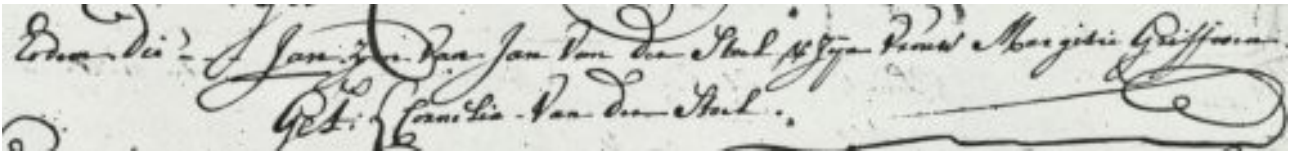 Eodem Die - Jan zn. Van Jan Van der Stoel & Zijn Vrouw Margitie Griffioen.
Get: { Cornilia Van der Stoel.